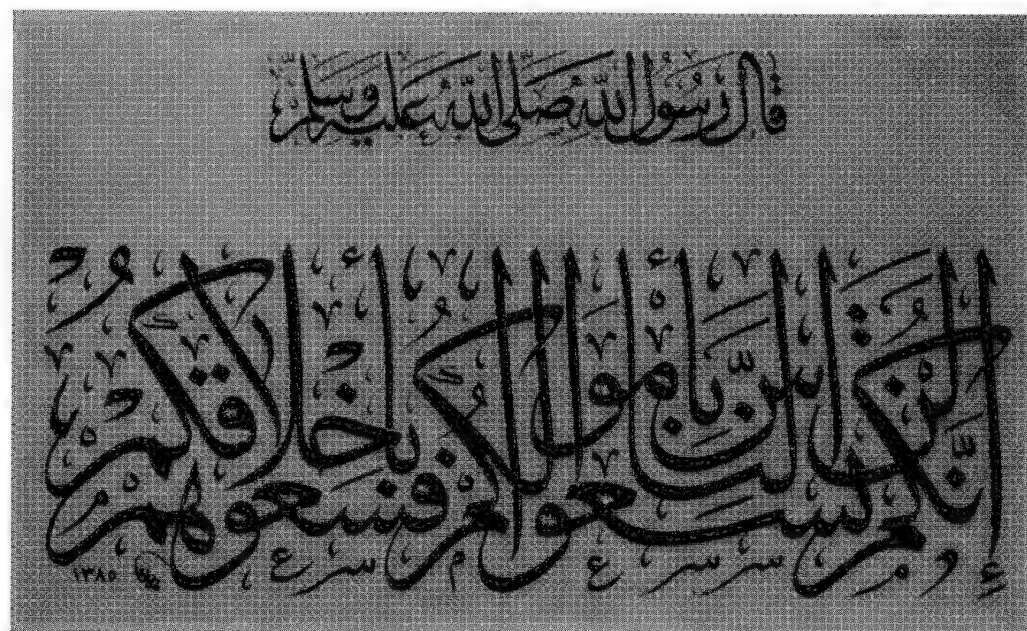 قال رسول الله صلى الله عليه وسلم
إنكم لن تسعوا الناس بأموالكم فسعوهم بأخلاقكم
١٣٨٥